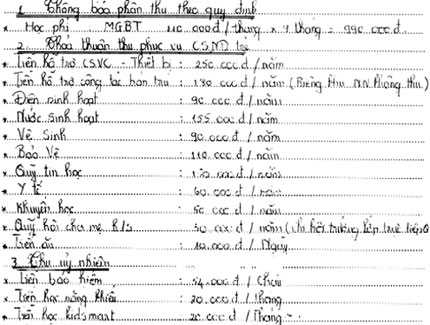 1. Thông báo phần thu theo quy định
* Học phí MGBT 110.000đ/tháng x 9 tháng = 990.000đ
2. Thỏa thuận thu phục vụ CSND
* Tiền hỗ trợ CSVC - Thiết b : 250.000đ/năm
* Tiền hỗ trợ công tác bán trú : 180.000đ/năm (Riêng thu MN không thu)
* Điện sinh hoạt : 90.000đ/năm
* Nước sinh hoạt : 155.000đ/năm
* Vệ sinh : 90.000đ/năm
* Bảo Vệ : 110.000đ/năm
* Quỹ tin học : 120.000đ/năm
* Y tế : 60.000đ/năm
* Khuyến học : 50.000đ/năm
* Quỹ hội cha mẹ H/s : 30.000đ/năm (chi hội trưởng lớp trực tiếp
* Tiền ăn : 10.000đ/Ngày
3. Thu uỷ nhiệm
* Tiền bảo hiểm : 54.000đ/Cháu
* Tiền học năng khiếu : 20.000đ/tháng
* Tiền học kidsmart : 20.000đ/Tháng